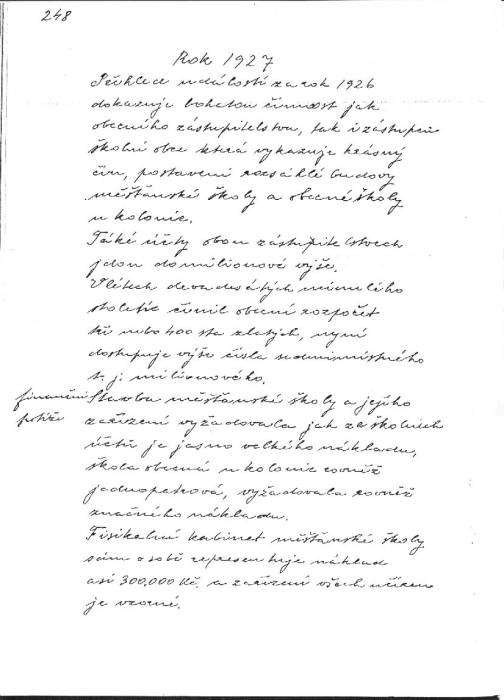 248
Rok 1927
Přehled událostí za rok 1926
dokazuje bohatou činnost jak
obecního zástupitelstva, tak i zástupci
školní obce která vykazuje krásný
čin, postavení rozsáhlé budovy
měšťanské školy a obecné školy
u kolonie.
Také účty obou zástupitelstvech
jdou do milionové výše.
V létech devadesátých minulého
století činil obecní rozpočet
tři nebo 400 sta zlatých, nyní
dostupuje výše čísla sedmimístného
t. j. milionového.
finanční Stavba měšťanské školy a jejího
potíže zařízení vyžadovala jak ze školních
účtů je jasno velkého nákladu,
škola obecná u kolonie rovněž
jednopatrová, vyžadovala rovněž
značného nákladu.
Fisikalní kabinet měšťanské školy
sám o sobě representuje náklad
asi 300,000 Kč. a zařízení všech učíren
je vzorné.